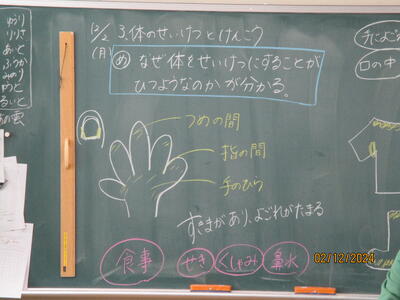 ゆうり
りりさ
あいと
ふうか
みのり
るいと
12/2
(月)
3.体のせいけつとけんこう
め なぜ体をせいけつにすることが
ひつようなのかが分かる。
つめの間
指の間
手のひら
すきまがあり、よごれがたまる
食事
せき
くしゃみ
鼻水
口の中
02/12/2024